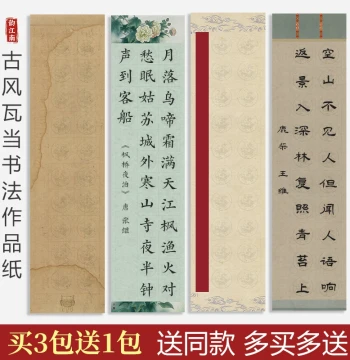 韵江南
古风瓦当书法作品纸
月落乌啼霜满天江枫渔火对
愁眠姑苏城外寒山寺夜半钟
声到客船
《枫桥夜泊》唐 张继
空山不见人但闻人语响
返景入深林复照青苔上
鹿柴 王维
买3包送1包 送同款 多买多送